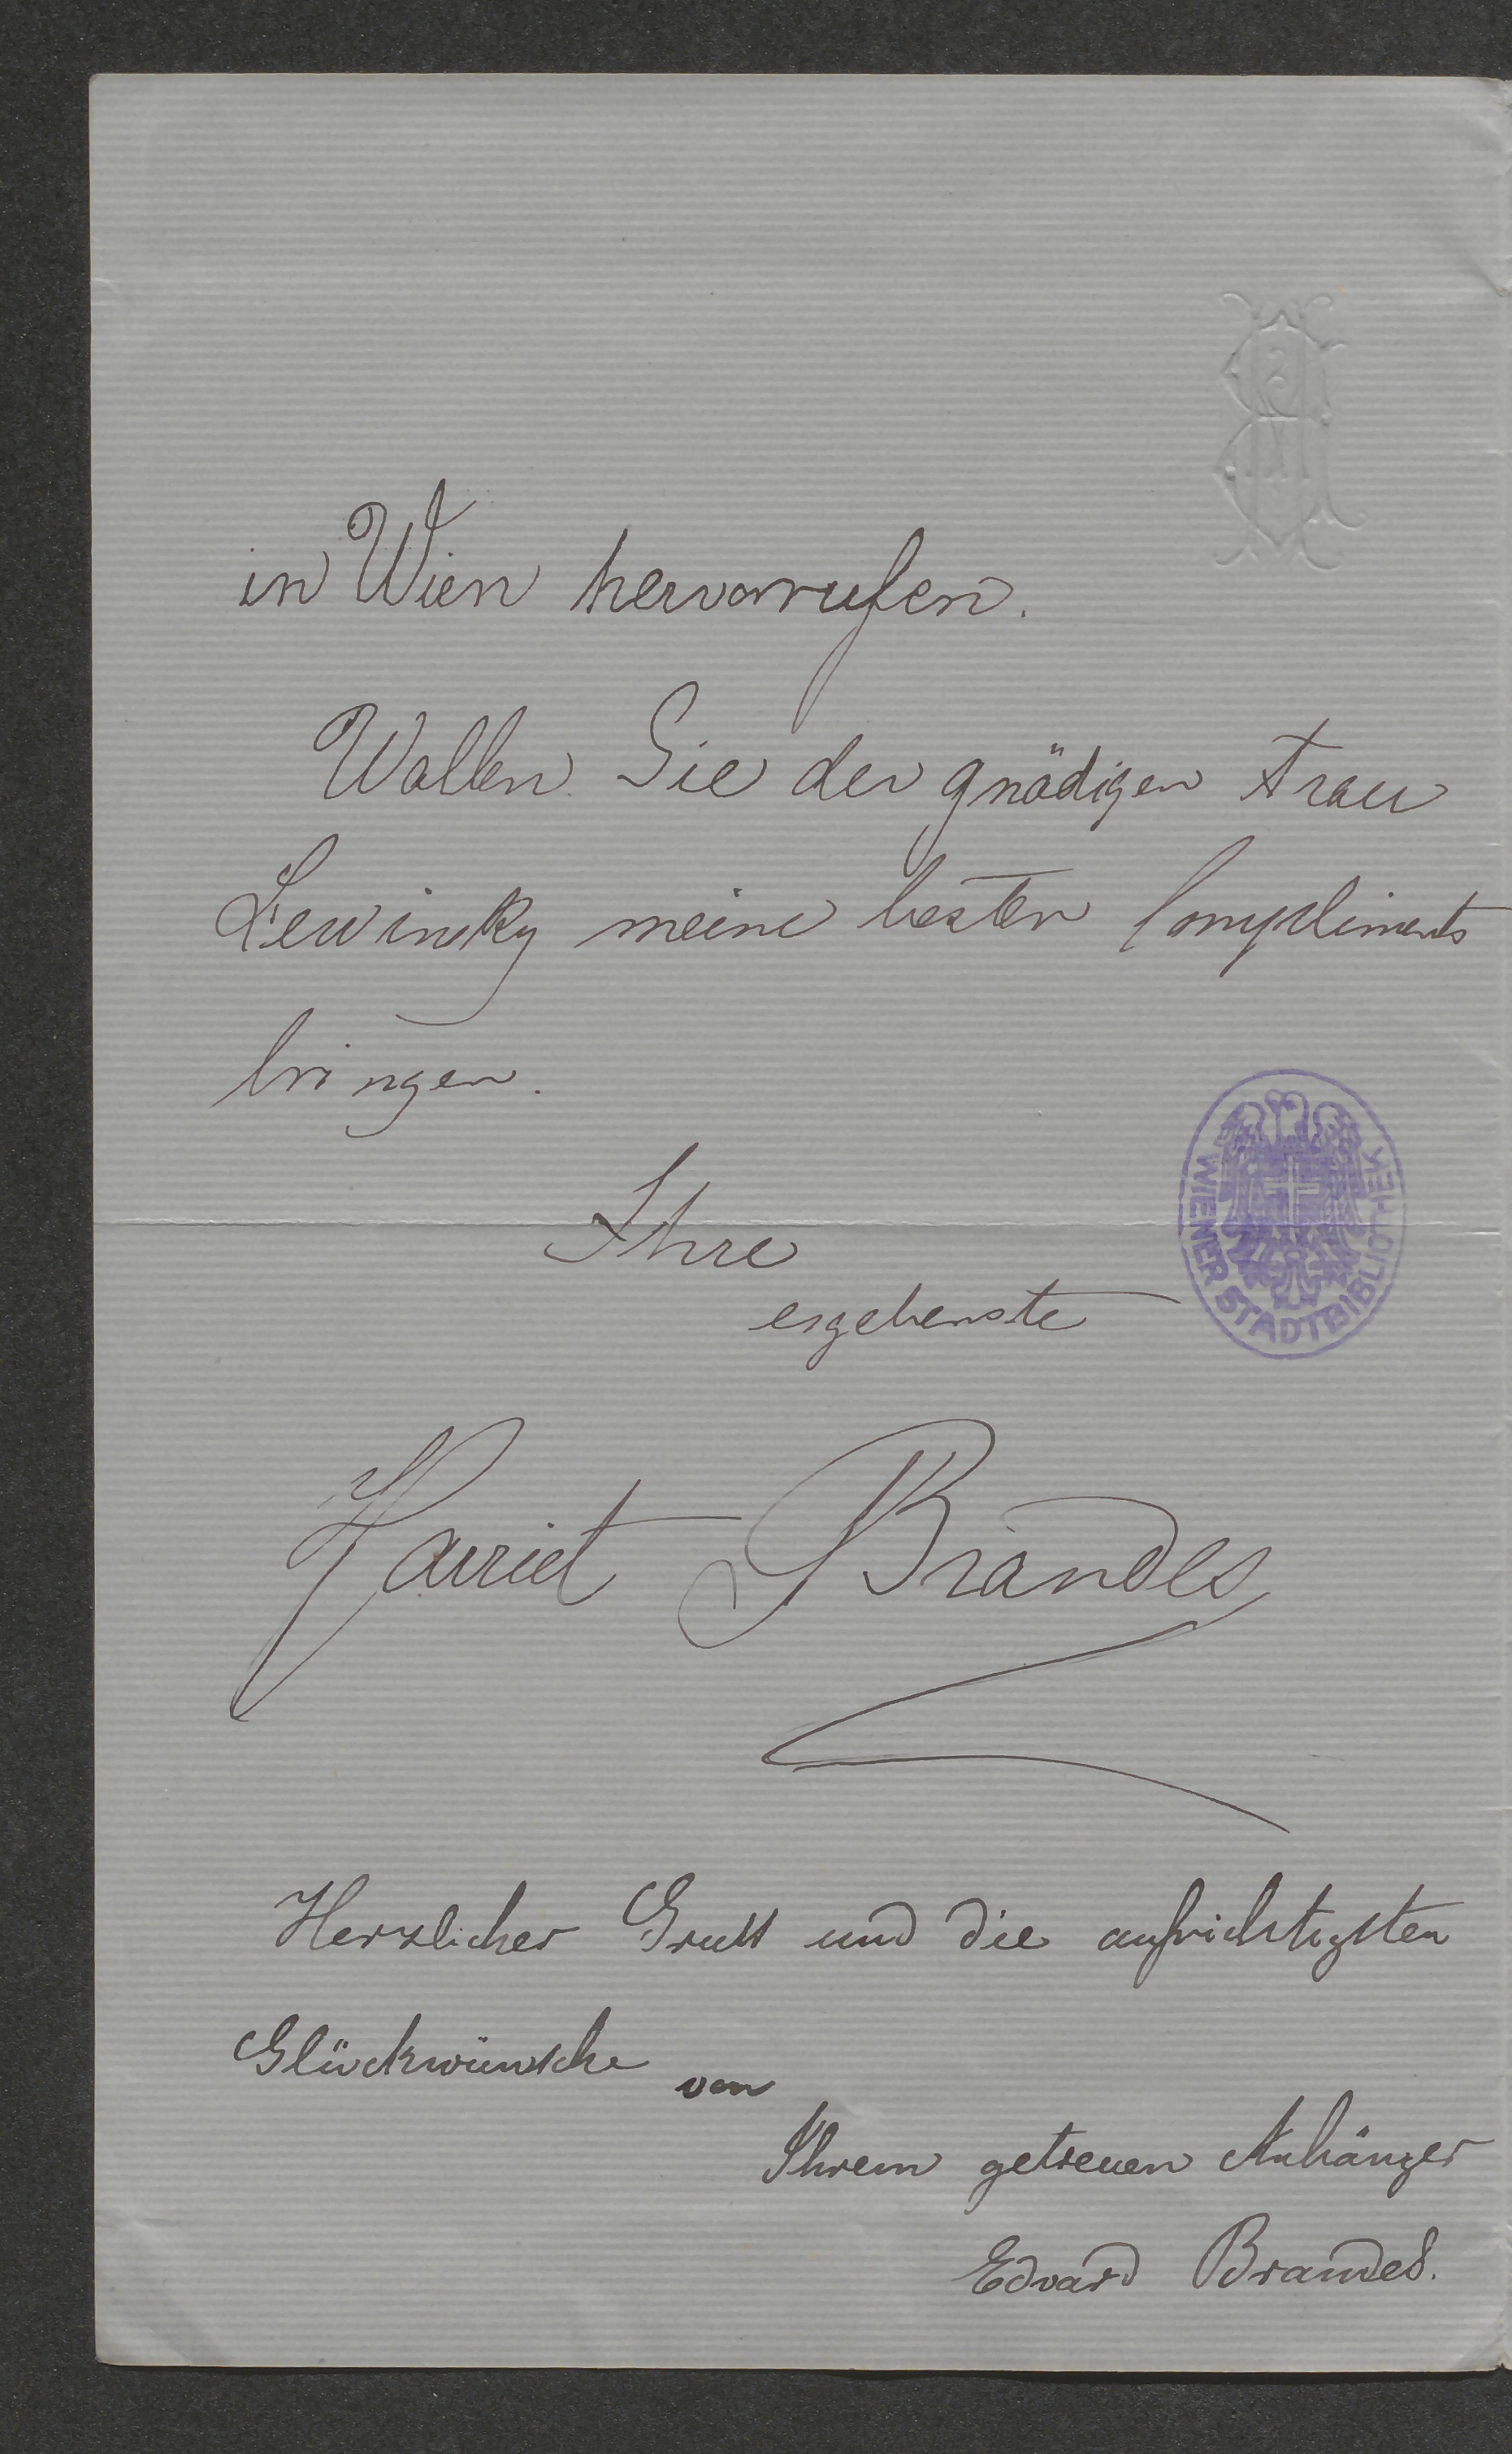 in Wien hervorrufen.
Wollen Sie der gnädigen Frau
Lewinsky meine besten Compliments
bringen.
WIENER STADTBIBLIOTHEK
Ihre
ergebenste
Harriet Brandes
Herzlicher Gruss und die aufrichtigsten
Glückwünsche von
Ihrem getreuen Anhänger
Edvard Brandes.